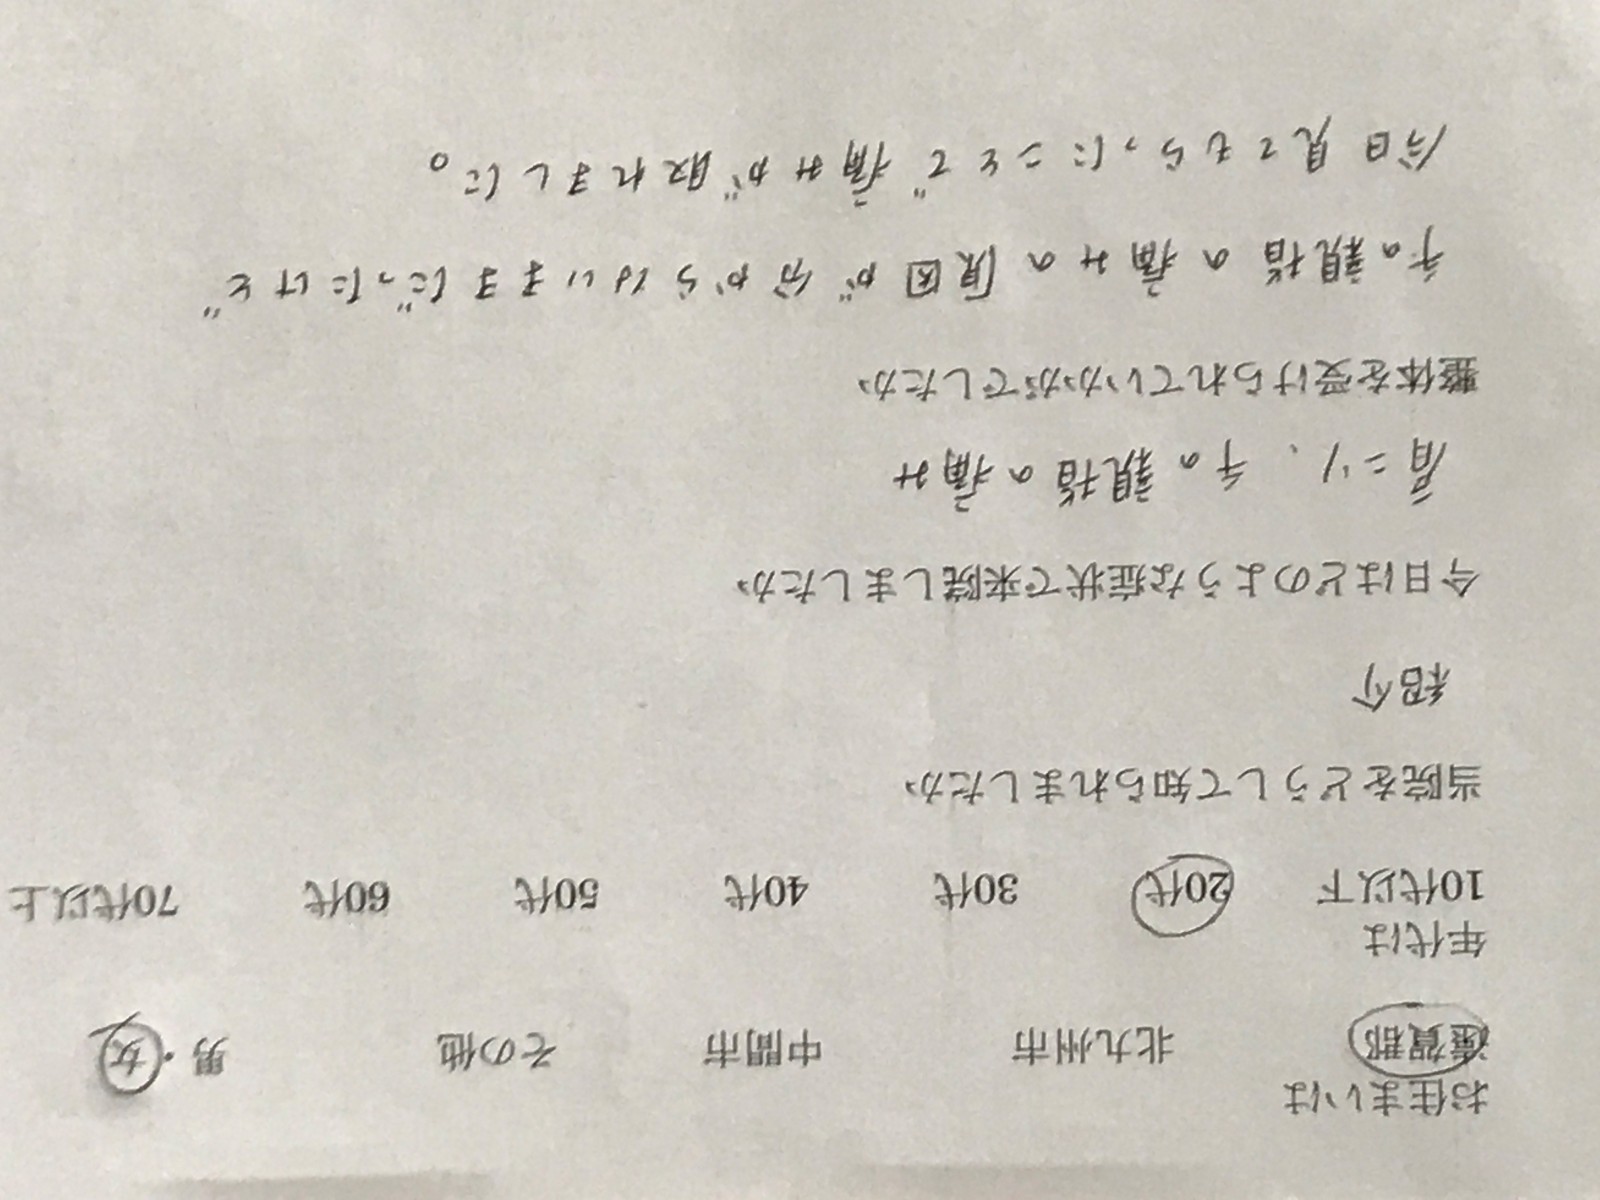 お住まいは
遠賀郡 北九州市 中間市 その他 男・女
年代は
10代以下 20代 30代 40代 50代 60代 70代以上
当院をどうして知られましたか
紹介
今日はどのような症状で来院しましたか
肩こり、手の親指の痛み
整体を受けられていかがでしたか
手の親指の痛みの原因が分からないままだったけど
今日見てもらったことで痛みが取れました。